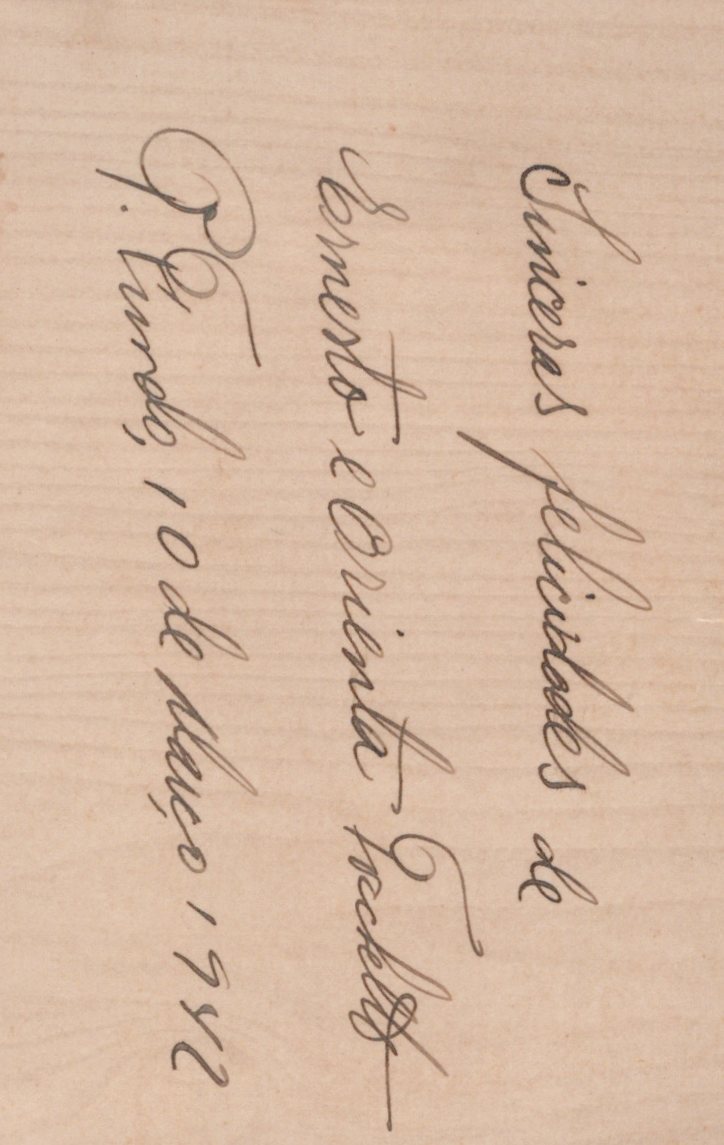 Sinceras felicidades de
Ernesto e Orienta
P. Fundo, 10 de Março 1942